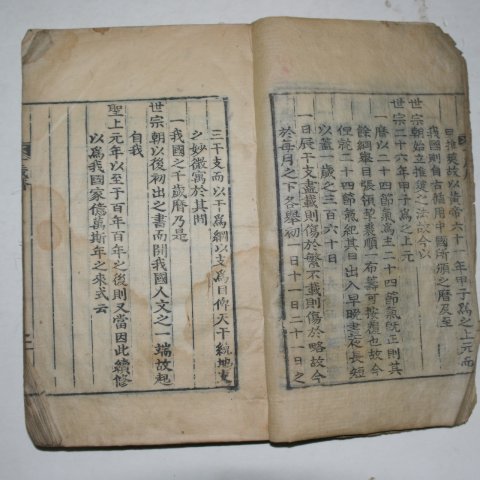 曰推筴故以黃帝六十一年甲子爲之上元而
我國則自古循用中國所頒之曆及至
世宗朝始立推筴之法故今以
世宗二十六年甲子爲之上元
一曆以二十四節氣爲主二十四節氣旣正則其
餘綱擧目張領挈裘順一布筭可按應也故今
但就二十四節氣紀其日出入早晩晝夜長短
以盡一歲之三百六十日
一日辰干支盡載則傷於繁不載則傷於略故今
於每月之下各擧初一日十一日二十一日之
三干支而以干爲綱以支爲目俾天干統地支
之妙微寓於其間
一我國之千歲曆乃是
世宗朝以後初出之書而開我國人文之一端故起
自我
聖上元年以至于百年百年之後則又當因此續修
以爲我國家億萬斯年之來式云